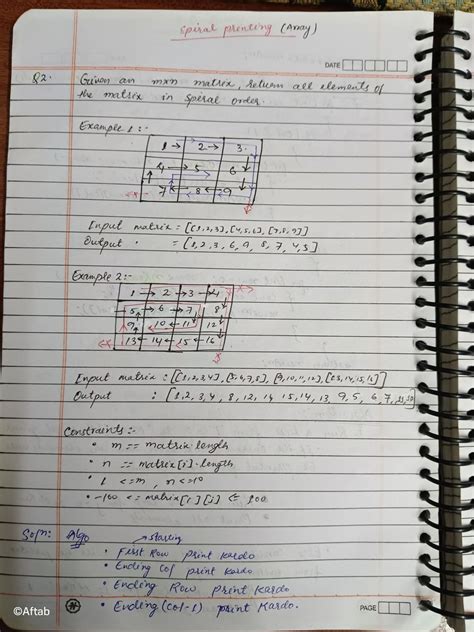 Spiral printing (Array)
DATE
Q2. Given an mxn matrix, return all elements of
the matrix in spiral order.
Example 1 :-
1 → 2 → 3
4 → 5 6
7 ← 8 ← 9
Input matrix = [[1,2,3],[4,5,6],[7,8,9]]
Output = [1,2,3,6,9,8,7,4,5]
Example 2:-
1 → 2 → 3 → 4
5 → 6 → 7 8
9 10 ← 11 12
13 ← 14 ← 15 ← 16
Input matrix : [[1,2,3,4], [5,6,7,8], [9,10,11,12], [13,14,15,16]]
Output : [1,2,3,4, 8, 12, 15, 14, 13, 9, 5, 6, 7, 11, 10]
Constraints :-
• m == matrix.length
• n == matrix[i].length
• 1 <= m, n <= 10
• -100 <= matrix[i][j] <= 100
Soln: Algo
starting
• First Row print Kardo
• Ending Col print Kardo
• Ending Row print Kardo
• Ending (Col-1) print Kardo.
©Aftab
PAGE